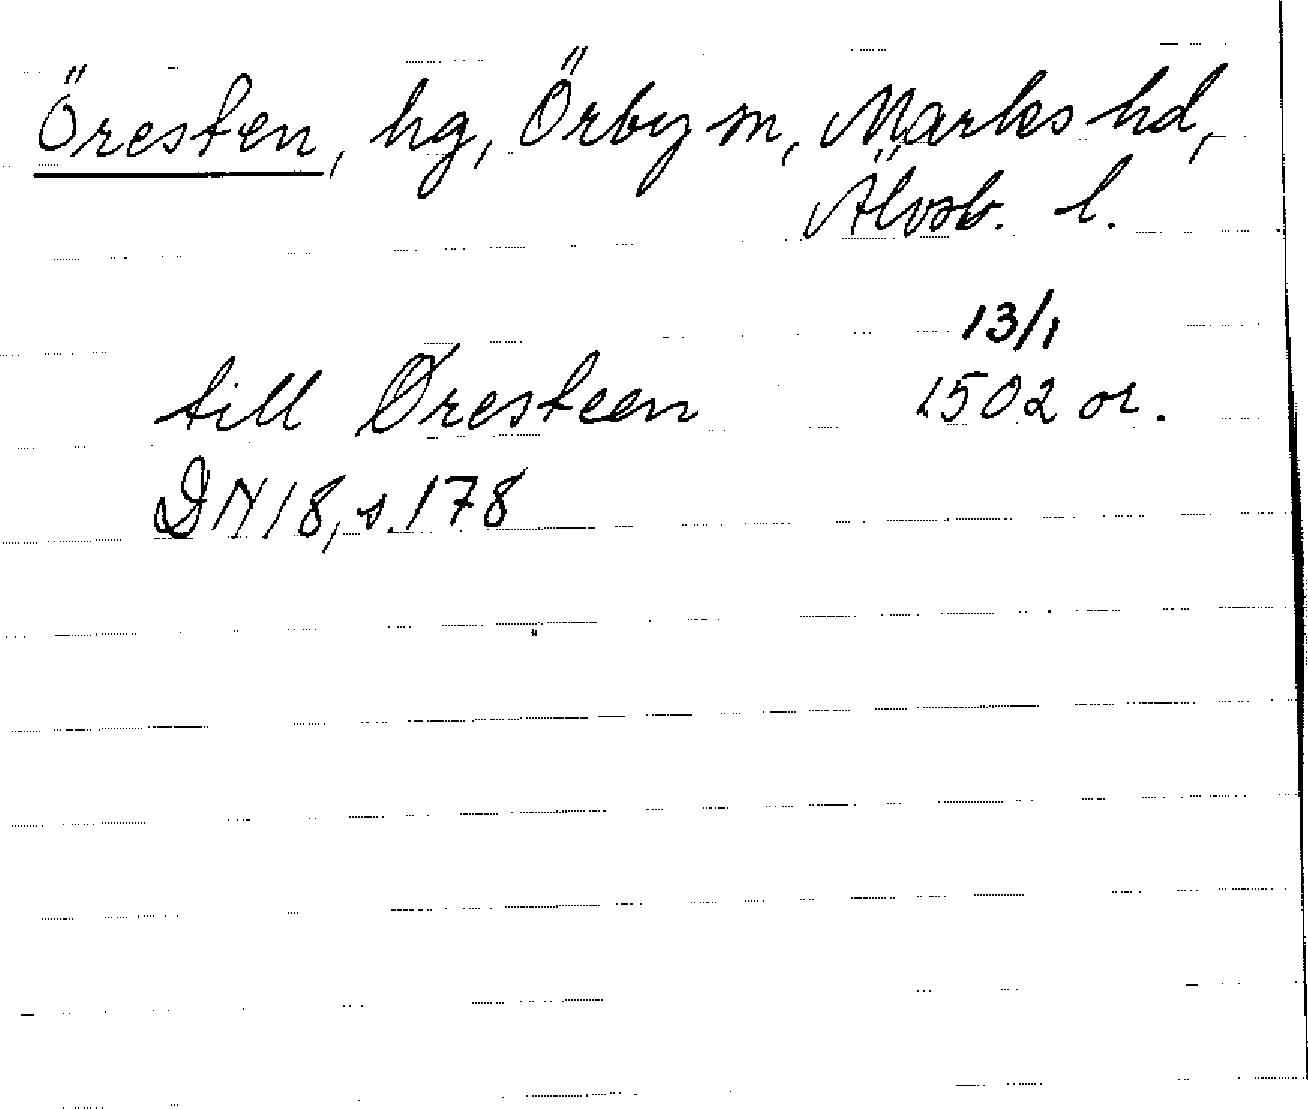 Öresten, hg, Örby sn, Marks hd,
Älvsb. l.
13/1
till Øresteen 1502 or.
DN 18, s. 178